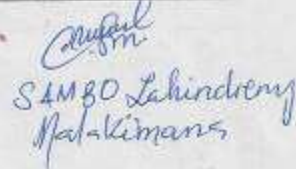 SAMBO Lahindreny
Malakimana